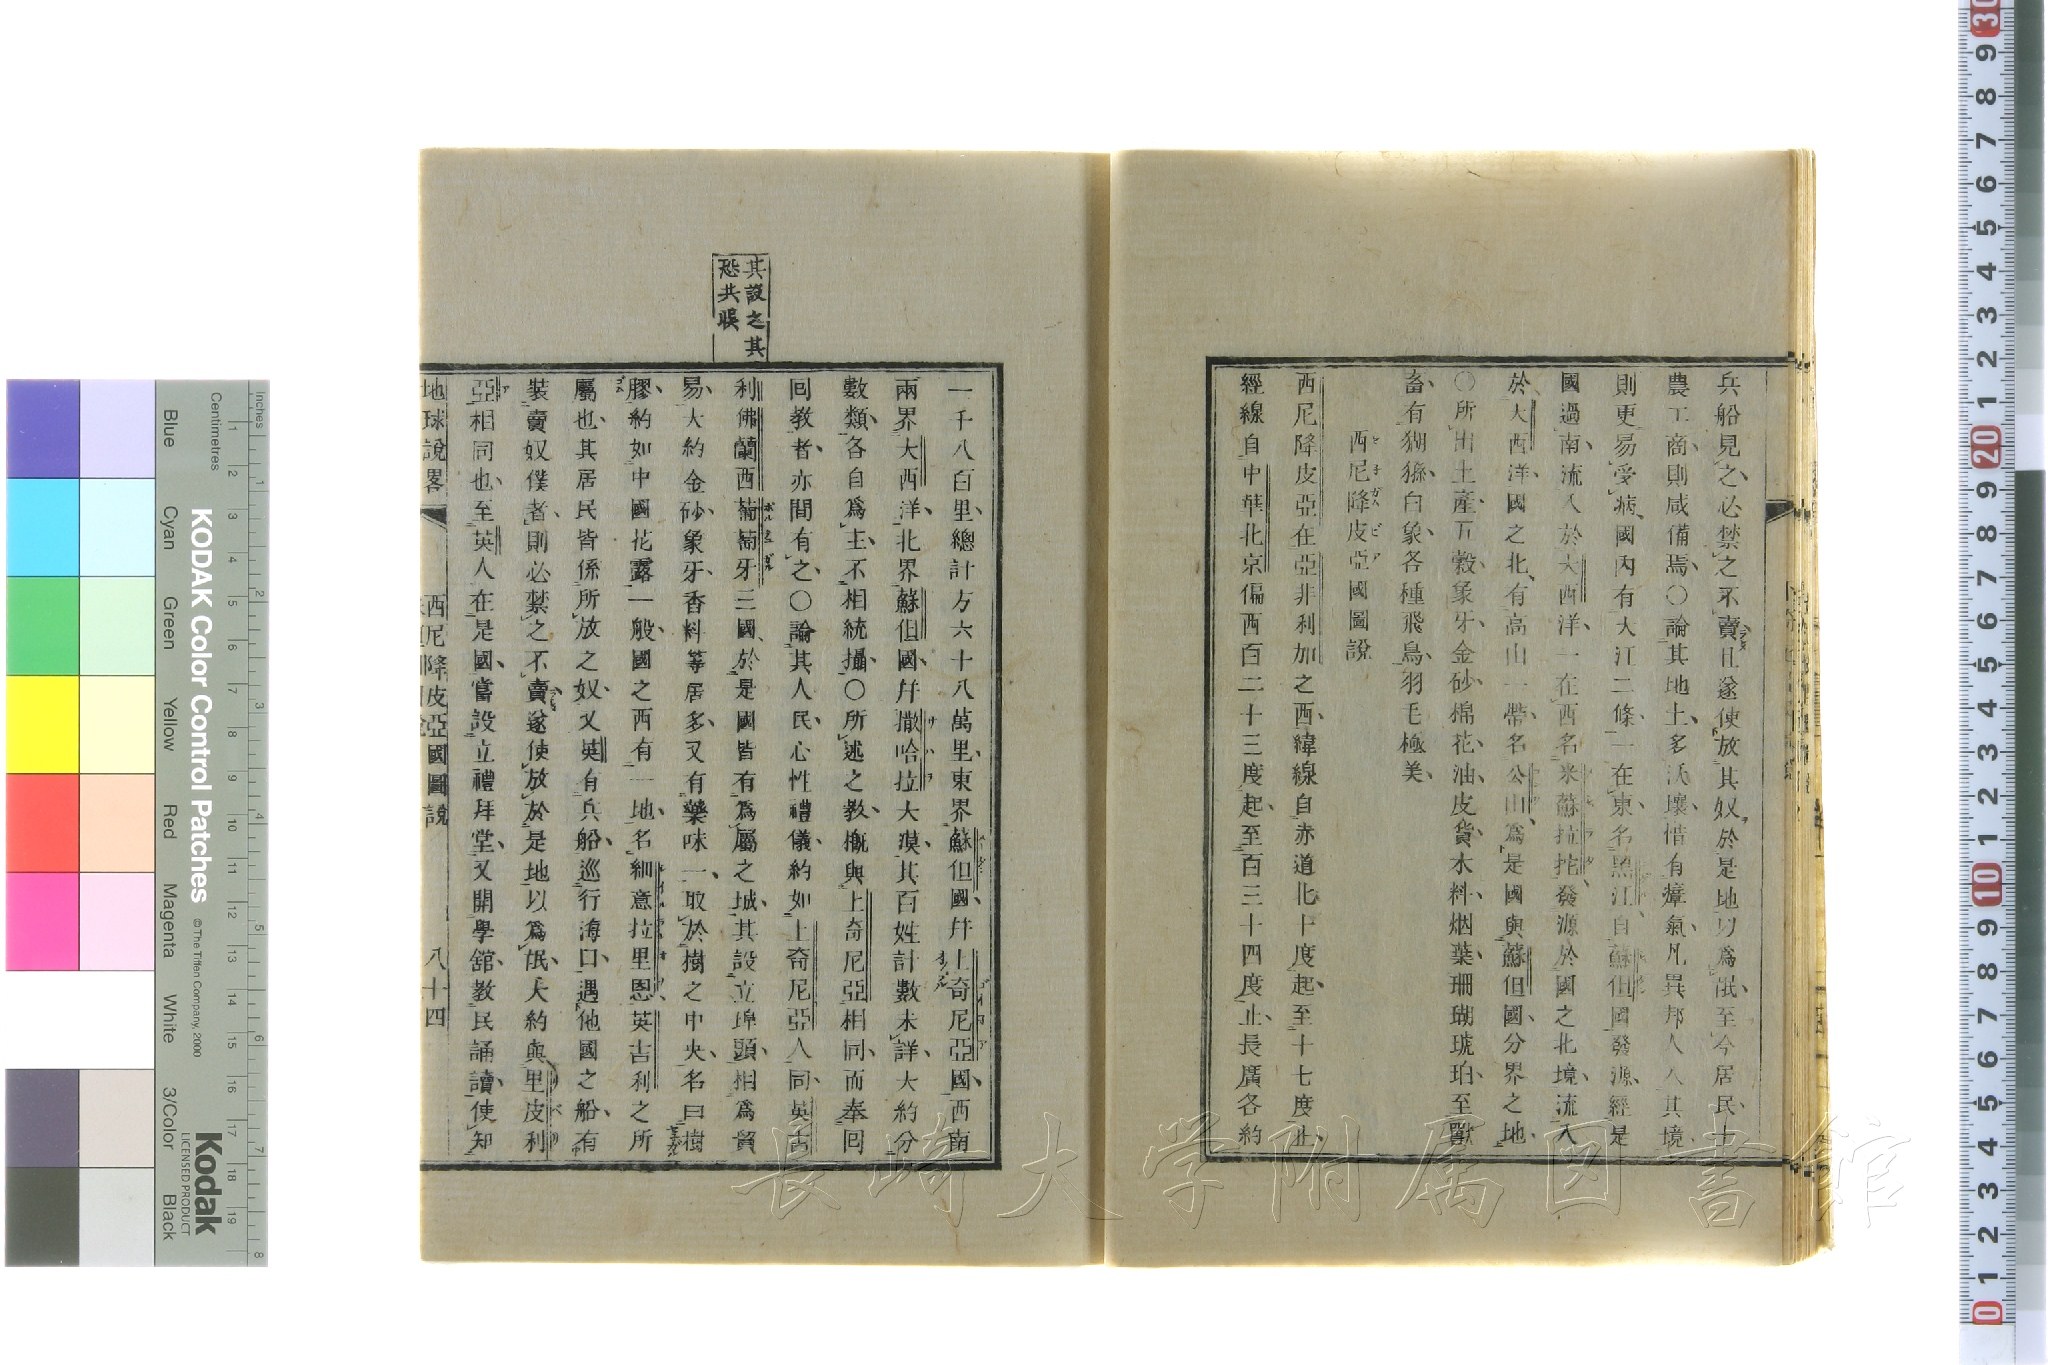 兵船見之必禁之不賣且遂使放其奴於是地以爲氓至今居民士
農工商則咸備焉〇論其地土多沃壤惜有瘴氣凡異邦人入其境
則更易受病國內有大江二條一在東名黑江自蘇但國發源經是
國過南流入於大西洋一在西名米蘇拉拕發源於國之北境流入
於大西洋國之北有高山一帶名公山爲是國與蘇但國分界之地
〇所出土產五穀象牙金砂棉花油皮貨水料烟葉珊瑚琥珀至獸
畜有猢猻白象各種飛鳥羽毛極美
西尼降皮亞國圖說
西尼降皮亞在亞非利加之西緯線自赤道北十度起至十七度止
經線自中華北京偏西百二十三度起至百三十四度止長廣各約
其設之其
恐共誤
一千八百里總計方六十八萬里東界蘇但國幷上奇尼亞國西南
兩界大西洋北界蘇但國幷撒哈拉大漠其百姓計數未詳大約分
數類各自爲主不相統攝〇所述之教槪與上奇尼亞相同而奉回
回教者亦間有之〇論其人民心性禮儀約如上奇尼亞人同英吉
利佛蘭西葡萄牙三國於是國皆有爲屬之城其設立埠頭相爲貿
易大約金砂象牙香料等居多又有藥味一取於樹之中央名曰樹
膠約如中國花露一般國之西有一地名細意拉里恩英吉利之所
屬也其居民皆係所放之奴又英有兵船巡行海口遇他國之船有
裝賣奴僕者則必禁之不賣遂使放於是地以爲氓大約與里皮利
亞相同也至英人在是國嘗設立禮拜堂又開學舘教民誦讀使知
地球說畧
西尼降皮亞國圖說
八十四
長崎大学附属図書館
KODAK Color Control Patches
© The Tiffen Company, 2000
Kodak
LICENSED PRODUCT
Inches
Centimetres
Blue
Cyan
Green
Yellow
Red
Magenta
White
3/Color
Black